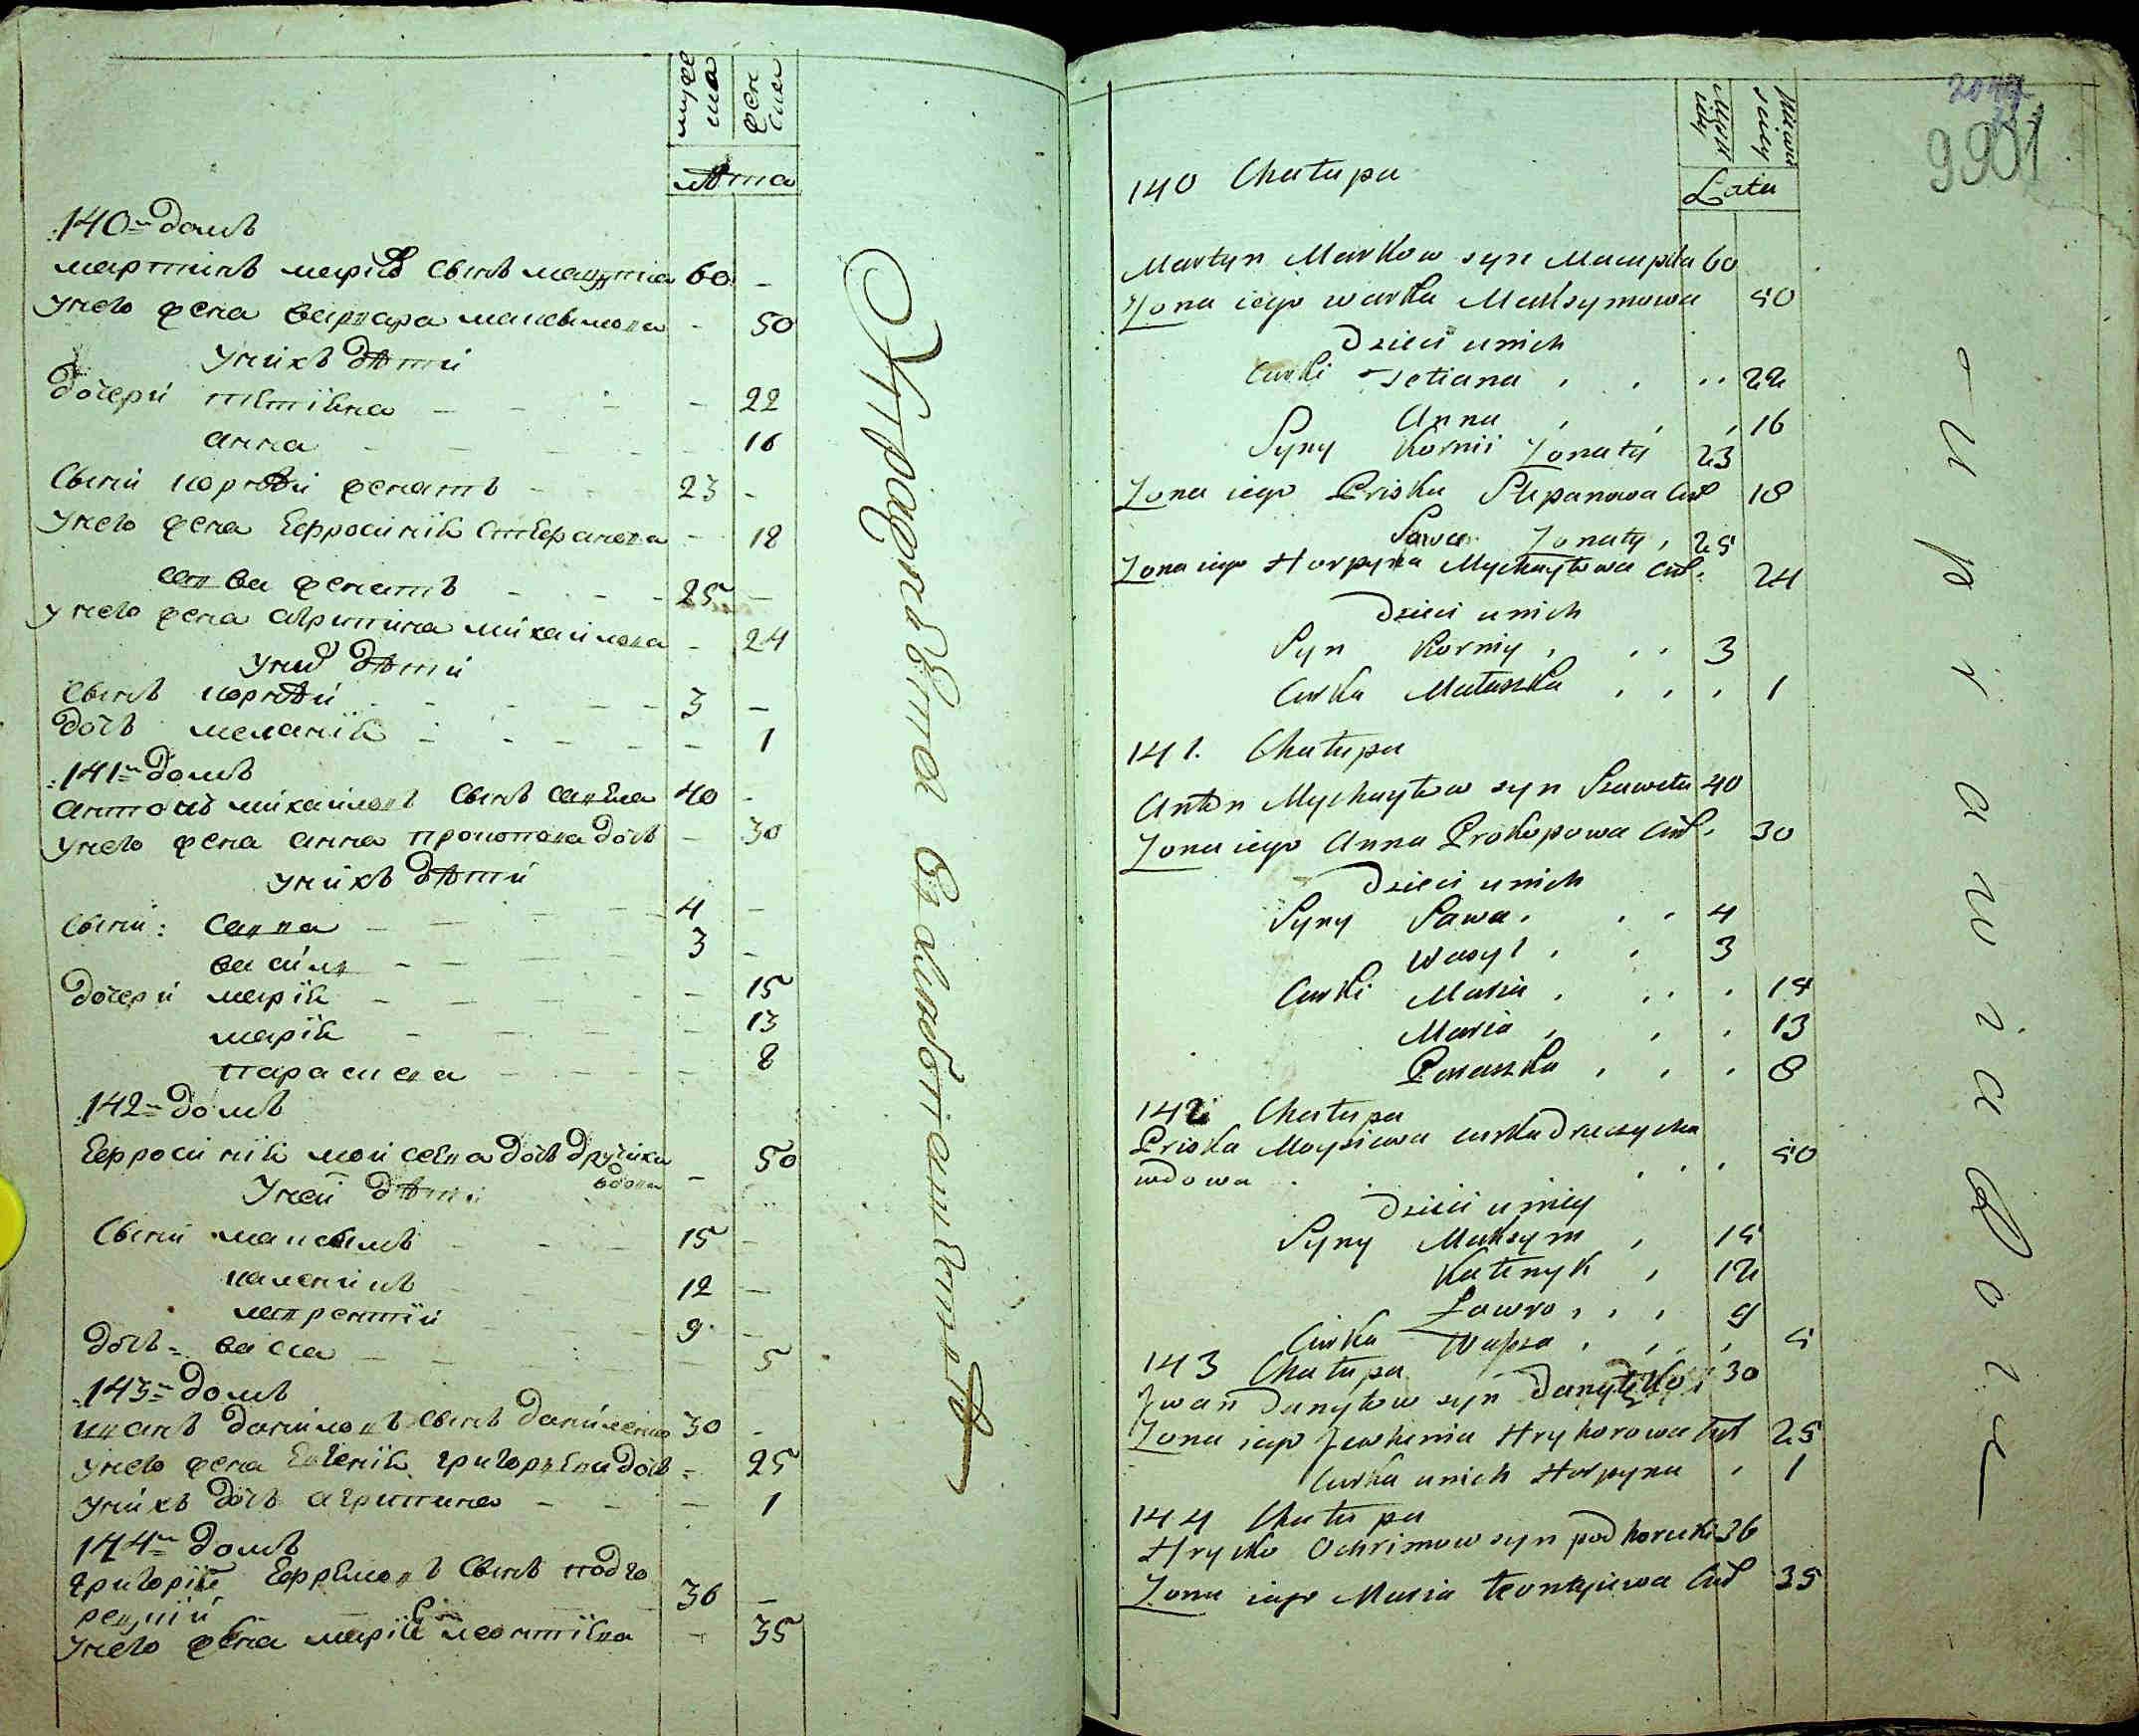 муже
ска
жен
ски
лѣта
140 домъ
мартинъ марковъ сынъ 60 -
унего жена варвара - 50
унихъ дѣти
дочери татіяна - 22
анна - 16
сыни корнѣй женатъ - 23 -
унего жена Евросинія стефанова - 18
савва женатъ - 25 -
унего жена агрипина михайлова - 24
унихъ дѣти
сынъ корнѣй - 3 -
дочь меланія - 1
141 домъ
антонъ михайловъ сынъ савела 40 -
унего жена анна прокопова дочь - 30
унихъ дѣти
сыни: савва - 4 -
василъ - 3 -
дочери марія - 15
марія - 13
параскева - 8
142 домъ
Евросинія мойсеева дочь
вдова - 50
Уней дѣти
сыни максимъ 15 -
каленикъ 12 -
лаврентій 9 -
дочь васса - 5
143 домъ
иванъ даниловъ сынъ даниленко 30 -
унего жена Евгенія григорьева дочь - 25
унихъ дочь агрипина - 1
144 домъ
григорій Ефремовъ сынъ подго
рецкій 36 -
унего жена марія леонтіева - 35
2047
9901
Męzk
Lata
140 Chałupa
Martyn Markow syn 60
Zona iego warka Maksymowa 50
Dzieci u nich
Curki Tetiana 22
Anna 16
Syny Kornii Zonaty 23
Zona iego Priska Stepanowa Cur 18
Sawa Zonaty 25
Zona iego Horpyna Mychayłowa Cur. 24
Dzieci u nich
Syn Korniy 3
Curka Małaszka 1
141. Chałupa
Anton Mychayłow syn Szaweła 40
Zona iego Anna Prokopowa Cur. 30
Dzieci u nich
Syny Sawa 4
Wasyl 3
Curki Maria 15
Maria 13
Paraszka 8
142 Chałupa
Priska Moysiewa curka Druczycha
wdowa 50
Dzieci u niey
Syny Maksym 15
Kałenyk 12
Ławro 9
Curka Wassa 5
143 Chałupa
Jwan Danyłow syn Danyłko 30
Zona iego Jewhenia Hryhorowa Cur 25
Curka u nich Horpyna 1
144 Chałupa
Hrycko Ochrimow syn podhorecki 36
Zona iego Maria Leontyiewa Cur 35